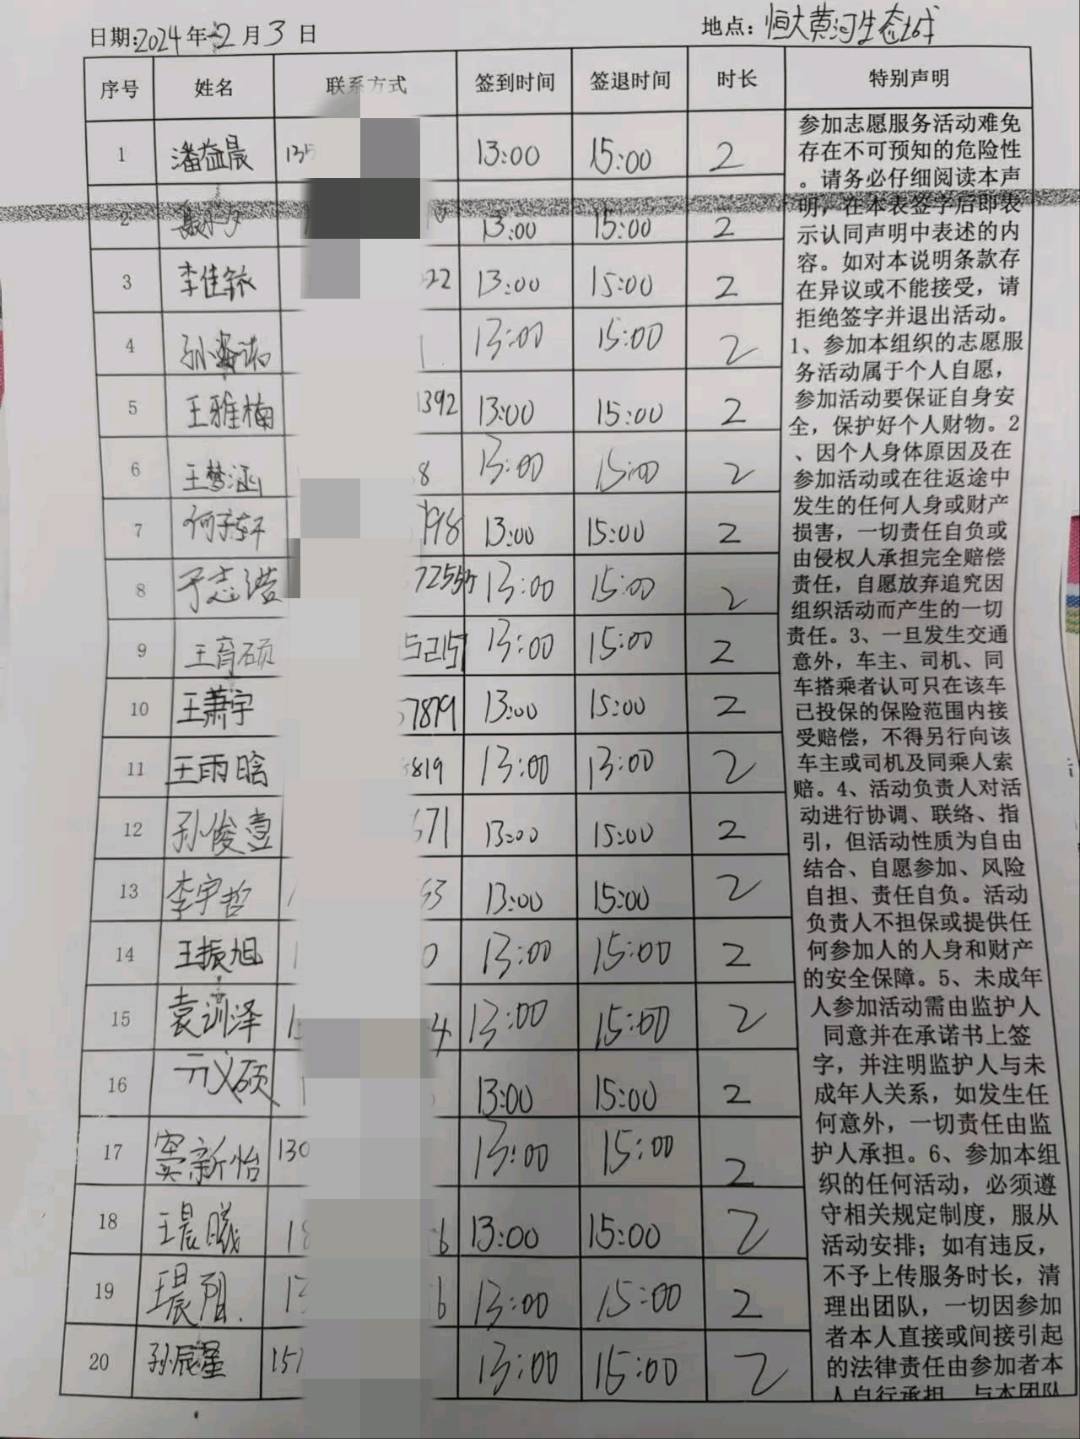 日期:2024年2月3日 地点:恒大黄河生态城
序号 姓名 联系方式 签到时间 签退时间 时长 特别声明
1 潘益晨 135 13:00 15:00 2
2 13:00 15:00 2
3 李佳 322 13:00 15:00 2
4 孙 1 13:00 15:00 2
5 王雅楠 1392 13:00 15:00 2
6 王梦涵 8 13:00 15:00 2
7 何子轩 798 13:00 15:00 2
8 于志浩 13:00 15:00 2
9 王育硕 13:00 15:00 2
10 王萧宇 7879 13:00 15:00 2
11 王雨晗 819 13:00 13:00 2
12 孙俊壹 671 13:00 15:00 2
13 李宇哲 13:00 15:00 2
14 王振旭 1 0 13:00 15:00 2
15 袁训泽 4 13:00 15:00 2
16 亓义硕 1 13:00 15:00 2
17 窦新怡 130 13:00 15:00 2
18 王晨曦 18 6 13:00 15:00 2
19 王晨阳. 13 6 13:00 15:00 2
20 孙辰星 157 13:00 15:00 2
参加志愿服务活动难免
存在不可预知的危险性
。请务必仔细阅读本声
明，在本表签字后即表
示认同声明中表述的内
容。如对本说明条款存
在异议或不能接受，请
拒绝签字并退出活动。
1、参加本组织的志愿服
务活动属于个人自愿，
参加活动要保证自身安
全，保护好个人财物。2
、因个人身体原因及在
参加活动或在往返途中
发生的任何人身或财产
损害，一切责任自负或
由侵权人承担完全赔偿
责任，自愿放弃追究因
组织活动而产生的一切
责任。3、一旦发生交通
意外，车主、司机、同
车搭乘者认可只在该车
已投保的保险范围内接
受赔偿，不得另行向该
车主或司机及同乘人索
赔。4、活动负责人对活
动进行协调、联络、指
引，但活动性质为自由
结合、自愿参加、风险
自担、责任自负。活动
负责人不担保或提供任
何参加人的人身和财产
的安全保障。5、未成年
人参加活动需由监护人
同意并在承诺书上签
字，并注明监护人与未
成年人关系，如发生任
何意外，一切责任由监
护人承担。6、参加本组
织的任何活动，必须遵
守相关规定制度，服从
活动安排；如有违反，
不予上传服务时长，清
理出团队，一切因参加
者本人直接或间接引起
的法律责任由参加者本
人自行承担，与本团队